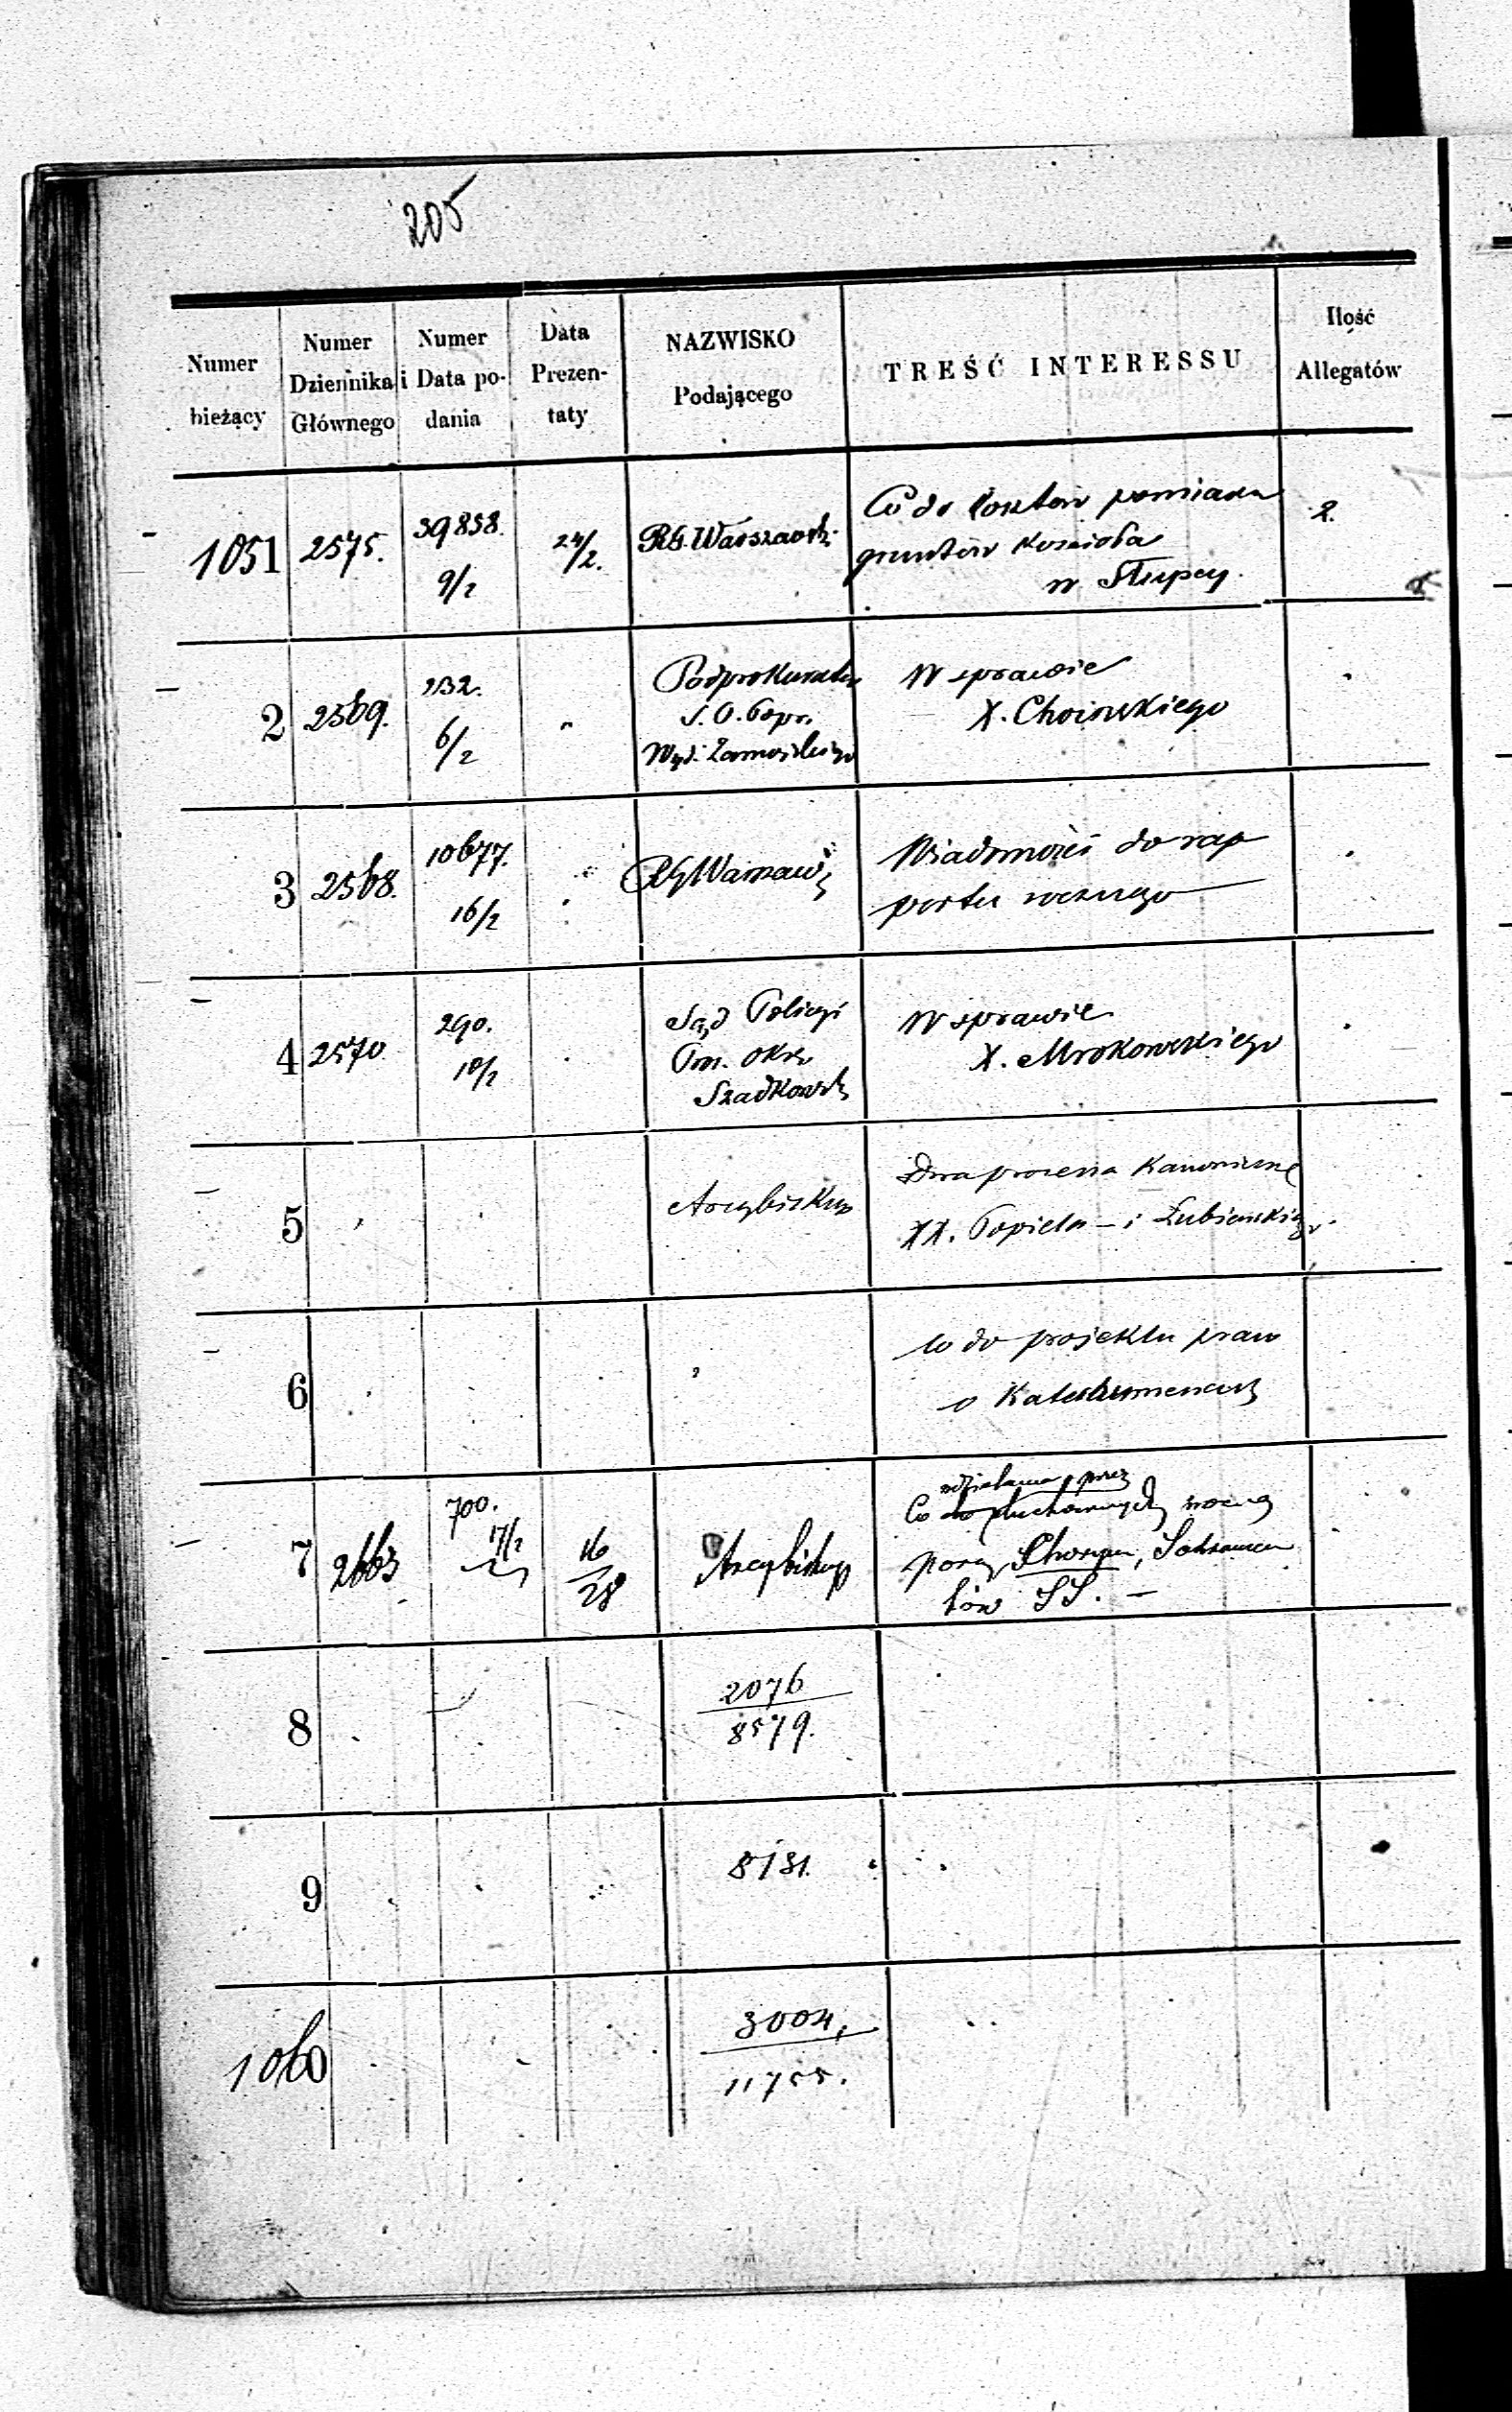 205
Numer bieżący
Numer Dziennika Głównego
Numer i Data podania
Data Prezentaty
NAZWISKO Podającego
TREŚĆ INTERESSU
Ilość Allegatów
1051 2575. 39858. 9/2 24/2. RG. Warszawsk.
Co do kosztów pomiaru
gruntów Kościoła
w Słupcy.
2.
2 2569. 232. 6/2 "
Podprokurator
S. O. Popr.
Wyd.
W sprawie
X. Choinskiego
3 2568. 10677. 16/2 RG Warszaw
Wiadomość do rap
portu
4 2570 290. 10/2
Sąd Policyi
Okr
Szadkowsk
W sprawie
X. Mrokowskiego
5 Arcybiskup
Dwa processa Kanoniczne
XX. Popiela - i Łubieńskiego.
6 "
Co do projektu praw
o Katechumenach
7 2663 700. 17/2 16/28 Arcybiskup
udzielania przez
Co do duchownych nocną
porą Chorym, Sakramen
tów SS. -
8 2076
8579.
9 8131.
1060 3004,
11755.